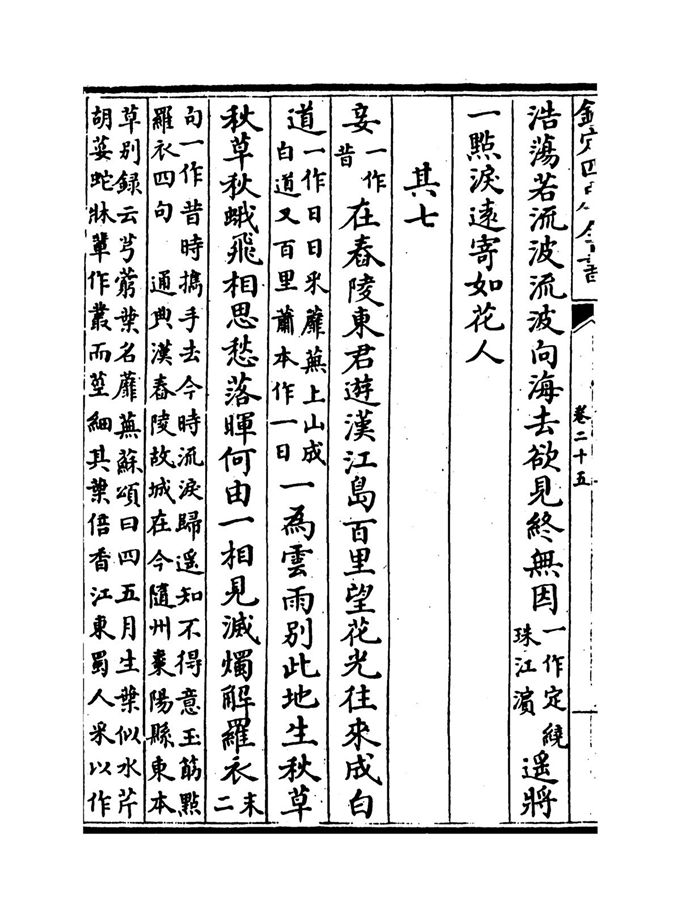 欽定四庫全書
卷二十五
浩蕩若流波流波向海去欲見終無因一作定繞珠江濱遥將
一點淚遠寄如花人
其七
妾一作昔在舂陵東君遊漢江島百里望花光往來成白
道一作日日采蘼蕪上山成白道又百里蕭本作一日一為雲雨別此地生秋草
秋草秋蛾飛相思愁落暉何由一相見滅燭解羅衣末二
句一作昔時攜手去今時流淚歸遥知不得意玉筯點
羅衣四句　通典漢舂陵故城在今隨州棗陽縣東本
草別錄云芎藭葉名蘼蕪蘇頌曰四五月生葉似水芹
胡荽蛇牀輩作叢而莖細其葉倍香江東蜀人采以作